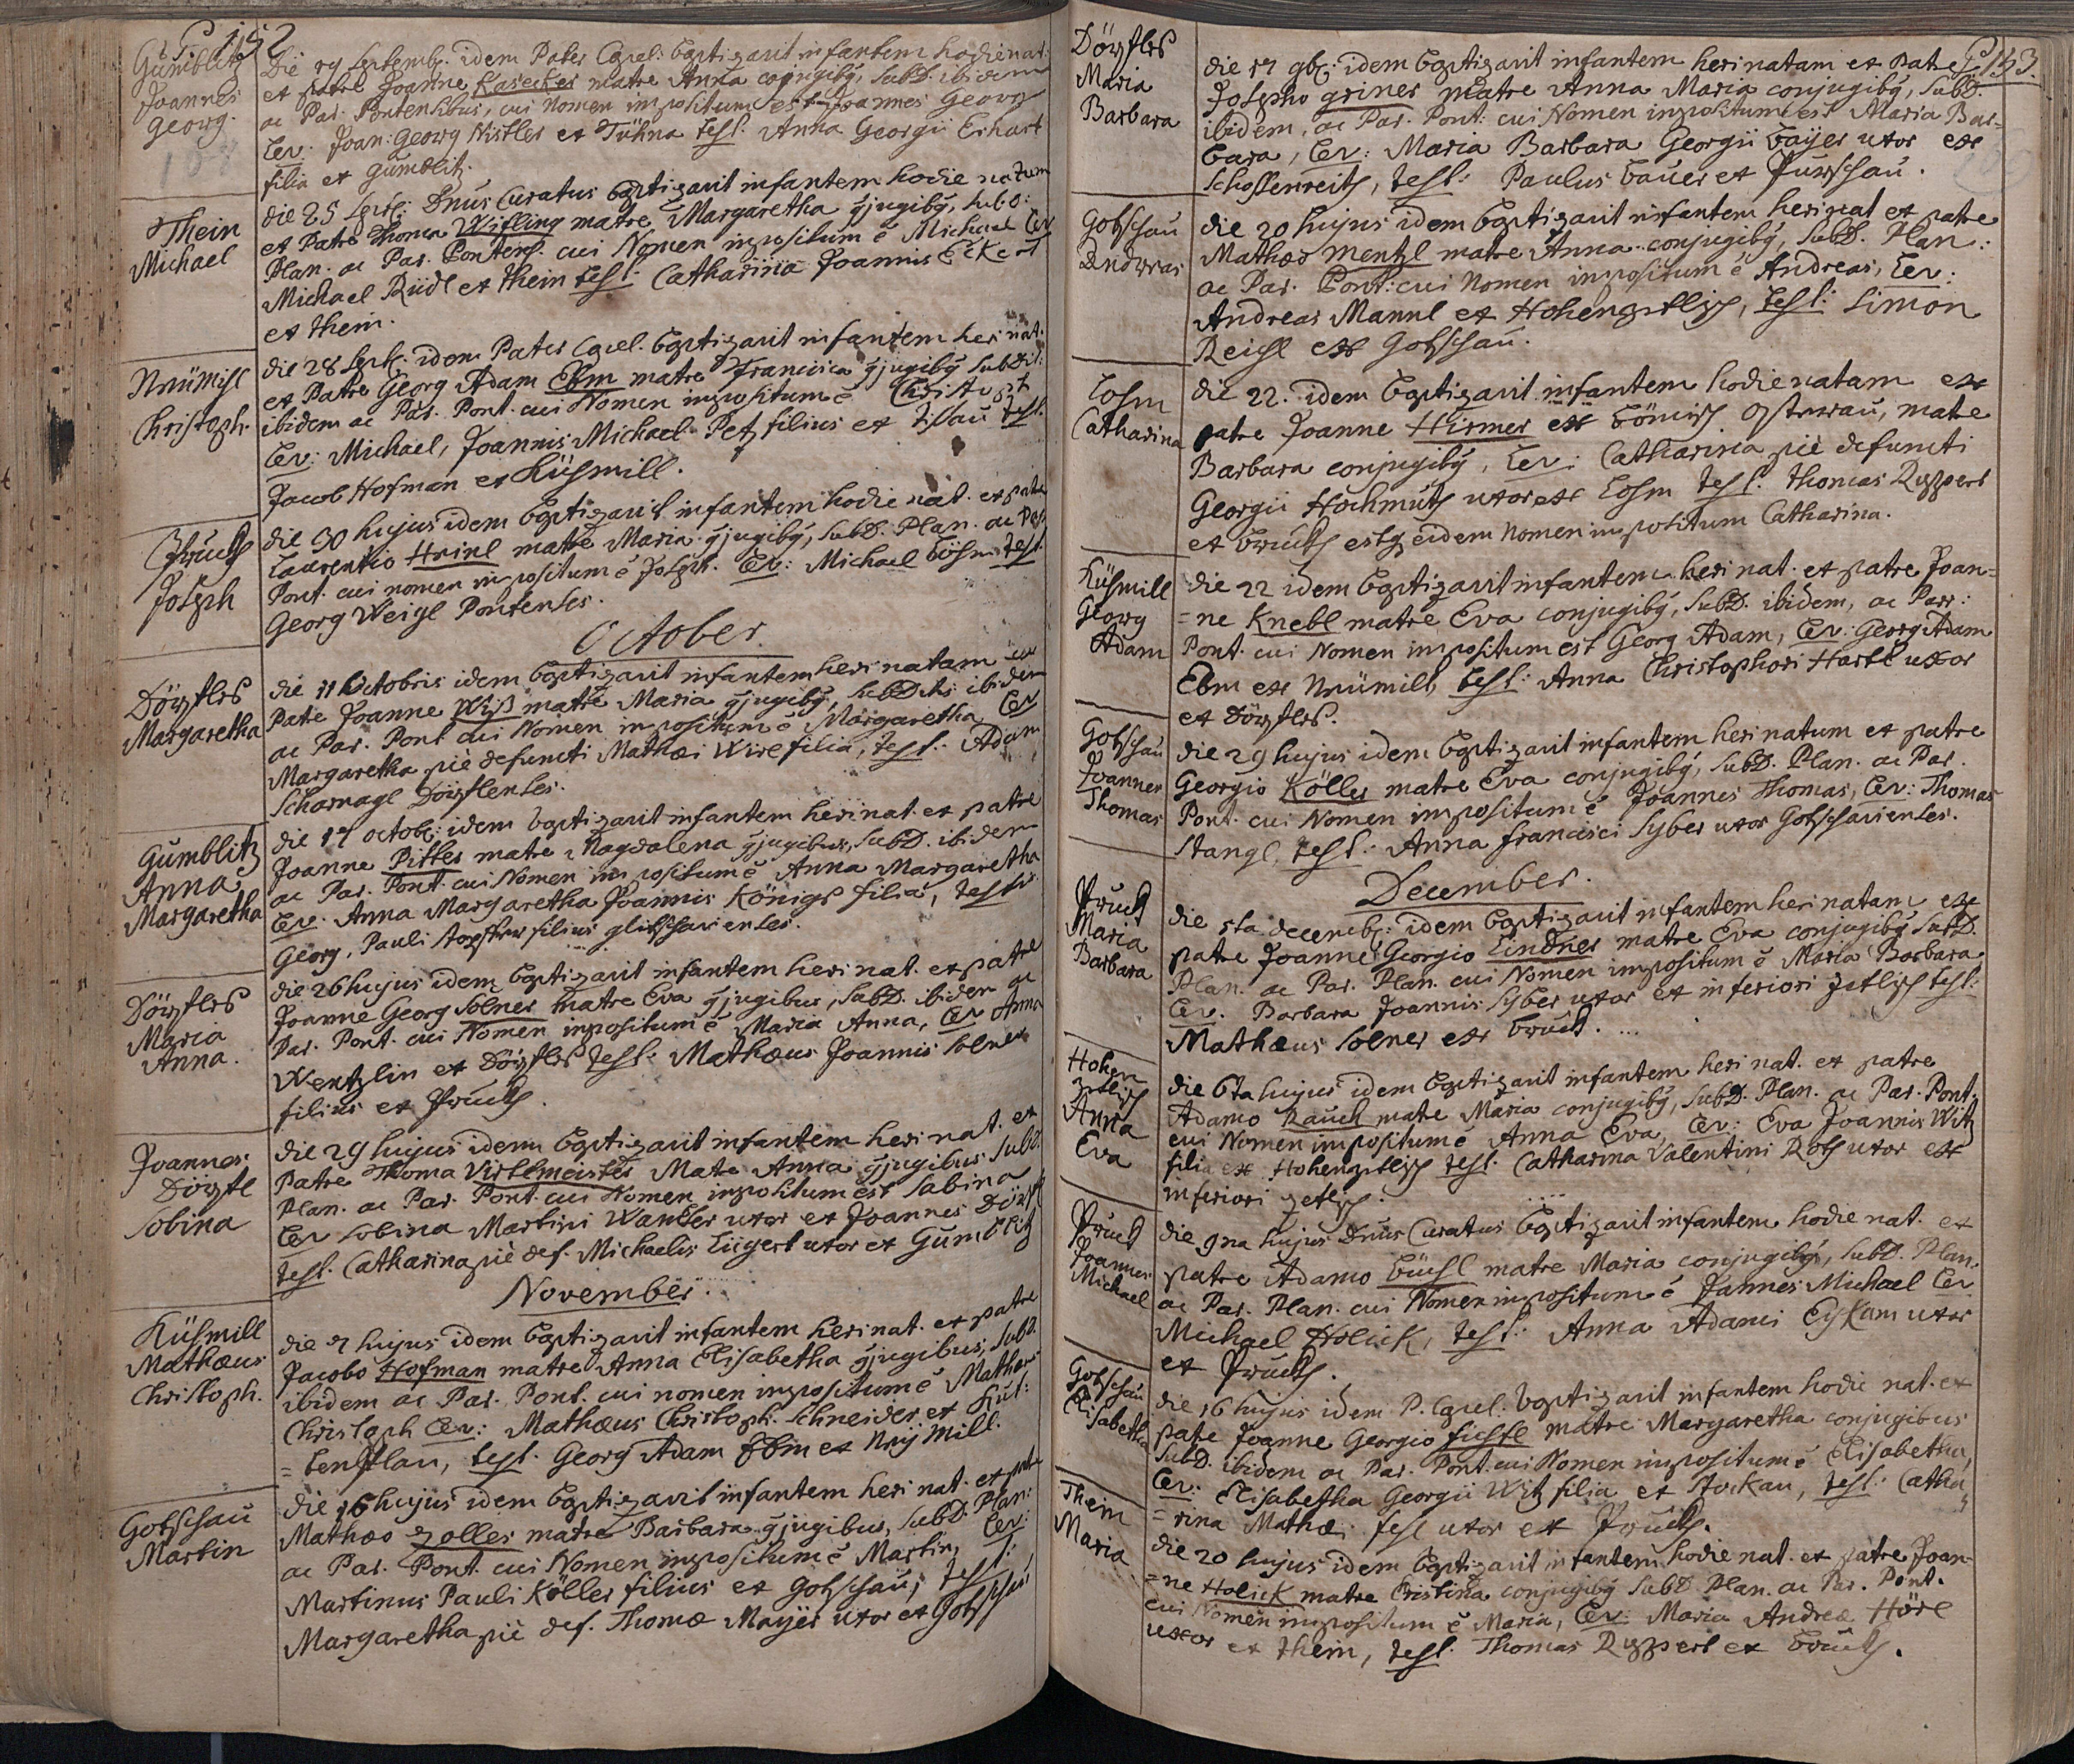 P. 152
Gümblitz
Joannes
Georg.
Die 19 Septemb: idem Pater Capel: baptizavit infantem hodie nat:
ex patre Joanne Kasecker matre Anna conjugibÿ, SubD. ibidem
ac Par. Pontensibus, cui Nomen impositum est Joannes Georg
Lev: Joan: Georg Kistler ex Tühna Test: Anna Georgii Erhart
filia ex Gümblitz.
Thein
Michael
die 25 Sept: Dnus Curatus baptizavit infantem hodie natum
ex Patre Thoma Wifling matre Margaretha gjugibÿ, SubD:
Plan. ac Par. Pontens. cui Nomen impositum é Michael Lev
Michael Riedl ex Thein Test: Catharina Joannis Eckert
ex Thein.
Neümihl
Christoph.
die 28 Sept: idem Pater Capel. baptizavit infantem heri nat.
ex Patre Georg Adam Ebm matre Francisca gjugibÿ SubDit:
ibidem ac Par. Pont. cui Nomen impositum é Christoph
Lev: Michael, Joannis Michael Petz filius ex Tissau Test.
Jacob Hofman ex Küsmill.
Pruckh
Joseph
die 30 hujus idem baptizavit infantem hodie nat. ex patre
Laurentio Heinl matre Maria gjugibÿ, SubD. Plan. ac Par.
Pont. cui nomen impositum é Joseph. Lev: Michael Böhm, Test.
Georg Weigl Pontenses.
October.
Dörfles
Margaretha
die 11 Octobris idem baptizavit infantem heri natam ex
Patre Joanne Wiß matre Maria gjugibÿ, SubDitis ibidem
ac Par. Pont cui Nomen impositum é Margaretha, Lev
Margaretha piè defuncti Mathæi Wirl filia, Test: Adam
Scharnagl Dörflenses.
Gümblitz
Anna
Margaretha
die 17 octob: idem baptizavit infantem heri nat. ex patre
Joanne Pitter matre Magdalena gjugibus, SubD. ibidem
ac Par. Pont. cui Nomen impositum é Anna Margaretha
Lev. Anna Margaretha Joannis Königs filia, Testis
Georg, Pauli Töpfer filius glitschauienses.
Dörfles
Maria
Anna.
die 26 hujus idem baptizavit infantem heri nat. ex patre
Joanne Georg Solner matre Eva gjugibus, SubD. ibidem ac
Par. Pont. cui Nomen impositum é Maria Anna, Lev Anna
Wentzlin ex Dörfles Test: Mathæus Joannis Solner
filius ex Pruckh.
Joannes
Dörfl
Sobina
die 29 hujus idem baptizavit infantem heri nat. ex
Patre Thoma Virtlmeister Matre Anna gjugibus SubD.
Plan. ac Par. Pont. cui Nomen impositum est Sabina
Lev Sobina Martini Wander uxor ex Joannes Dörfl
Test. Catharina piè def. Michaelis Liigert uxor ex Gümblitz
November.
Küsmill
Mathæus
Christoph.
die 7 hujus idem baptizavit infantem heri nat. ex patre
Jacobo Hofman matre Anna Elisabetha gjugibus, SubD.
ibidem ac Par. Pont. cui nomen impositum é Mathæus
Christoph Lev: Mathæus Christoph. Schneider ex Kut:
=tenplan, Test. Georg Adam Ebm ex Neÿmill.
Gotschau
Martin
die 16 hujus idem baptizavit infantem heri nat. ex patre
Mathæo Zoller matre Barbara gjugibus, SubD. Plan:
ac Par. Pont. cui Nomen impositum é Martin, Lev:
Martinus Pauli Köller filius ex Gotschau, Test:
Margaretha piè def. Thomæ Mayer uxor ex Gotschau
P. 153.
Dörfles
Maria
Barbara
die 17 9b: idem baptizavit infantem heri natam ex patre
Josepho Griner matre Anna Maria conjugibÿ, SubD.
ibidem, ac Par. Pont: cui Nomen impositum est Maria Bar=
bara, Lev: Maria Barbara Georgii Bayer uxor ex
Schossenreith, Test: Paulus Bauer ex Purschau.
Gotschau
Andreas
die 20 hujus idem baptizavit infantem heri nat ex patre
Mathæo Mentzl matre Anna conjugibÿ, SubD. Plan:
ac Par. Pont: cui Nomen impositum é Andreas, Lev:
Andreas Mannl ex Hohenzetlisch, Test: Simon
Reichl ex Gotschau.
Losm
Catharina
die 22. idem baptizavit infantem hodie natam ex
patre Joanne Hirmer ex Bömisch matre
Barbara conjugibÿ, Lev: Catharina piè defuncti
Georgii Hochmuth uxor ex Losm Test. Thomas Ruppert
ex Bruckh estq eidem Nomen impositum Catharina.
Küsmill
Georg
Adam
die 22 idem baptizavit infantem heri nat. ex patre Joan=
=ne Knebl matre Eva conjugibÿ, SubD. ibidem, ac Parr:
Pont. cui Nomen impositum est Georg Adam, Lev: Georg Adam
Ebm ex Neümill, Test: Anna Christophori Hartl uxor
ex Dörfles.
Gotschau
Joannes
Thomas
die 29 hujus idem baptizavit infantem heri natum ex patre
Georgio Köller matre Eva conjugibÿ, SubD. Plan. ac Par.
Pont. cui Nomen impositum é Joannes Thomas, Lev: Thomas
Stangl, Test: Anna Francisci Syber uxor Gotschavienses.
December.
Pruckh
Maria
Barbara
die 5ta decemb: idem baptizavit infantem heri natam ex
patre Joanne Georgio Lindner matre Eva conjugibÿ SubD.
Plan. ac Par. Plan. cui Nomen impositum é Maria Barbara
Lev. Barbara Joannis Syber uxor ex inferiori Zetlisch Test:
Mathæus Solner ex Bruckh.
Hohen
Zetlisch
Anna
Eva
die 6ta hujus idem baptizavit infantem heri nat. ex patre
Adamo Rauch matre Maria conjugibÿ, SubD. Plan. ac Par. Pont.
cui Nomen impositum é Anna Eva, Lev: Eva Joannis Witz
filia ex Hohenzetlisch Test. Catharina Valentini Roth uxor ex
inferiori Zetlisch.
Pruckh
Joannes
Michael
die 9na hujus Dnus Curatus baptizavit infantem hodie nat. ex
patre Adamo Büchl matre Maria conjugibÿ, SubD. Plan.
ac Par. Plan. cui Nomen impositum é Joannes Michael Lev
Michael Holick, Test: Anna Adami uxor
ex Pruckh.
Gotschau
Elisabetha
die 16 hujus idem P. Capel. baptizavit infantem hodie nat. ex
patre Joanne Georgio Fichtl matre Margaretha conjugibus
SubD. ibidem ac Par. Pont. cui Nomen impositum é Elisabetha,
Lev: Elisabetha Georgii Witz filia ex Stockau, Test: Catha
=rina Mathæi uxor ex Pruckh.
Thein
Maria
die 20 hujus idem baptizavit infantem hodie nat. ex patre Joan=
=ne Holick matre Cristina conjugibÿ SubD. Plan. ac Par. Pont.
cui Nomen impositum é Maria, Lev: Maria Andreæ Hörl
uxor ex Thein, Test: Thomas Ruppert ex Bruckh.